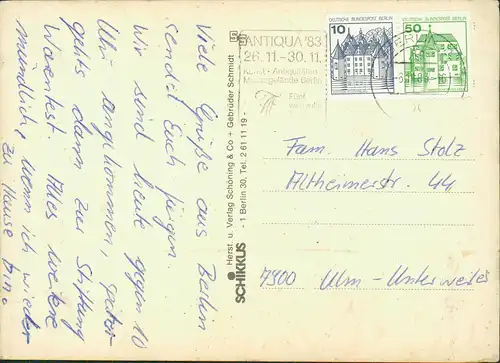 Viele Grüße aus Berlin
sendet Euch Jürgen.
Wir sind heute gegen 10
Uhr angekommen, später
gehts dann zur Stiftung
Warentest. Alles weitere
mündlich, wenn ich wieder
zu Hause bin.
SCHIKKUS
Herst. u. Verlag Schöning & Co + Gebrüder Schmidt
- 1 Berlin 30, Tel. 2 61 11 19 -
ANTIQUA '83
26.11.-30.11.
Kunst- Antiquitäten
Berlin
10 DEUTSCHE BUNDESPOST BERLIN
50 DEUTSCHE BUNDESPOST BERLIN
Fam. Hans Stolz
Altheimerstr. 44
7900 Ulm - Unterweiler